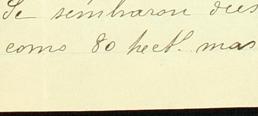 Se sembraron
como 80 hect. mas